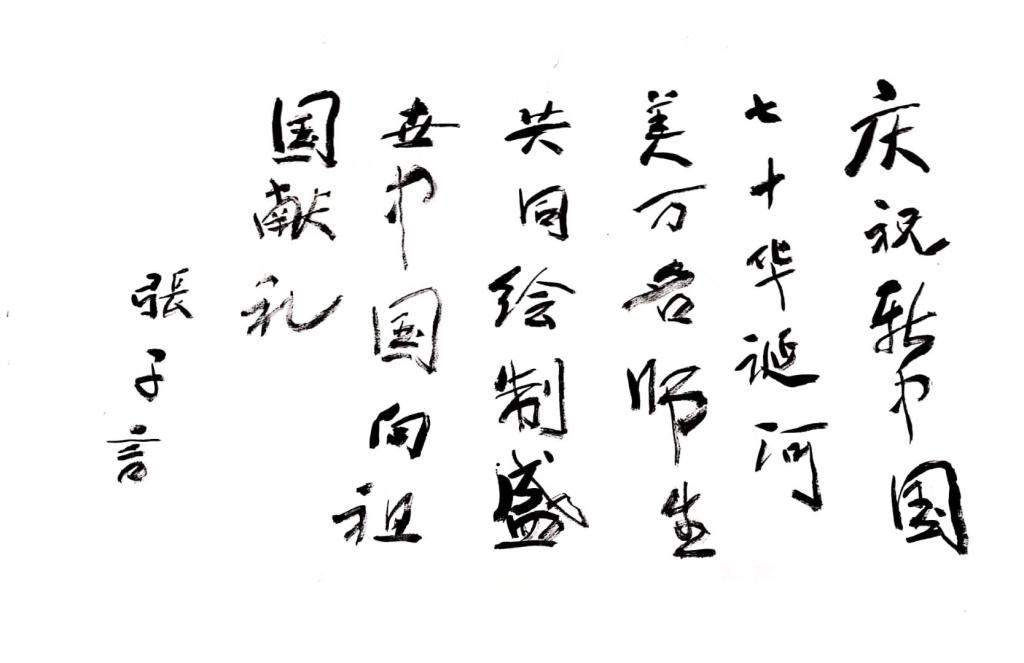 庆祝新中国
七十华诞河
美万名师生
共同绘制盛
世中国向祖
国献礼
張子言